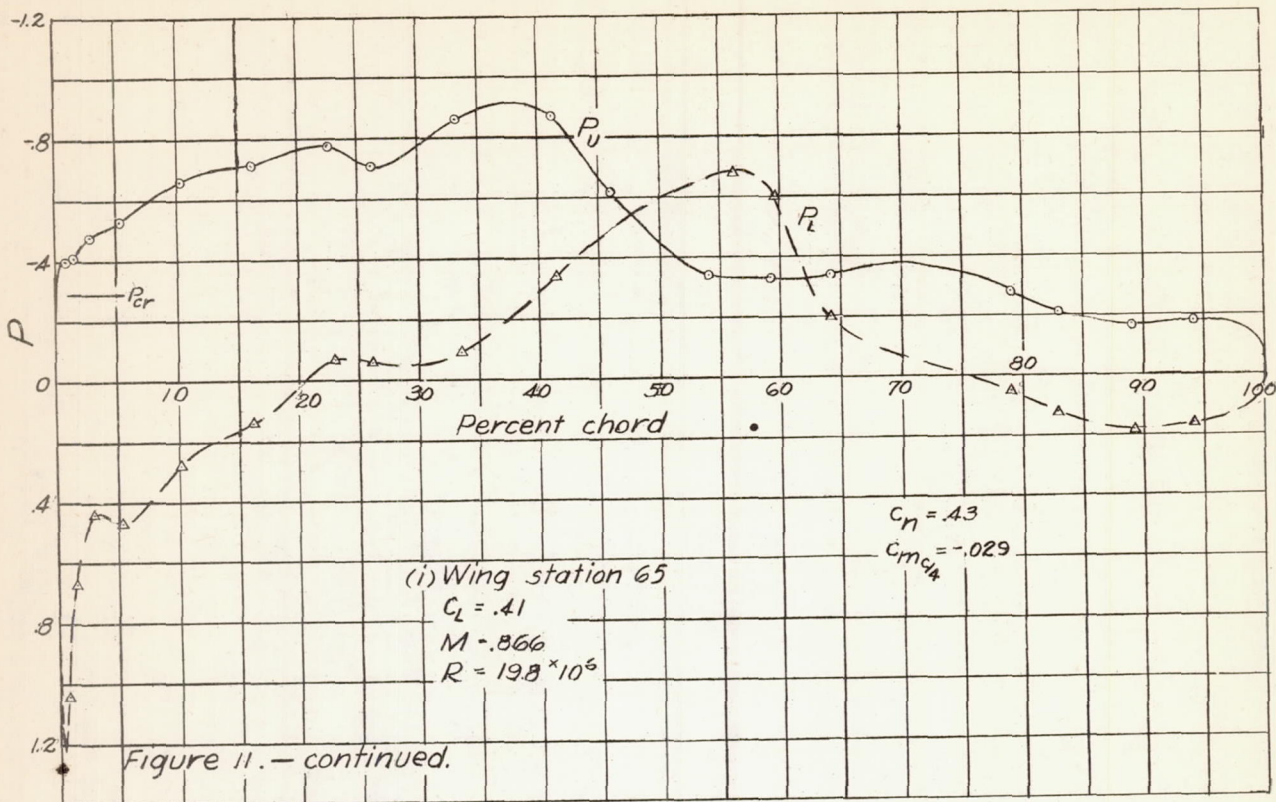 -1.2
-.8
P_U
-.4
P_L
P_cr
P
0
10
20
30
40
50
60
70
80
90
100
Percent chord
.4
c_n = .43
c_m_c/4 = -.029
(i) Wing station 65
C_L = .41
M - .866
R = 19.8 × 10^6
.8
1.2
Figure 11. — continued.